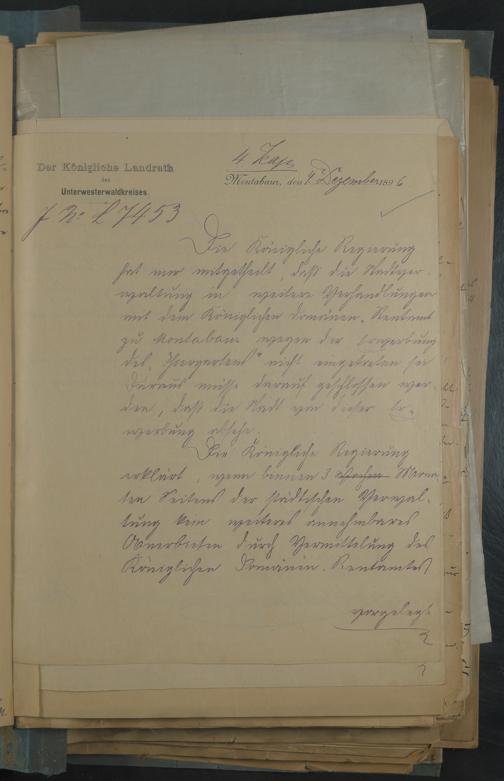 Der Königliche Landrath
des
Unterwesterwaldkreises.
Montabaur, den 9. Dezember 1896
J. No. L 7453
Die Königliche Regierung
hat mir mitgetheilt, daß die Stadtver-
waltung in weitere Verhandlungen
mit dem Königlichen Domänen-Rentamt
zu Montabaur wegen der Erwerbung
des „Haargartens" nicht eingetreten sei
daraus müsse darauf geschlossen wer-
den, daß die Stadt von dieser Er-
werbung absehe.
Die Königliche Regierung
erklärt, wenn binnen 3 Wochen Mona-
ten Seitens der städtischen Verwal-
tung kein weiteres annehmbares
Anerbieten durch Vermittelung des
Königlichen Domänen-Rentamtes
vorgelegt